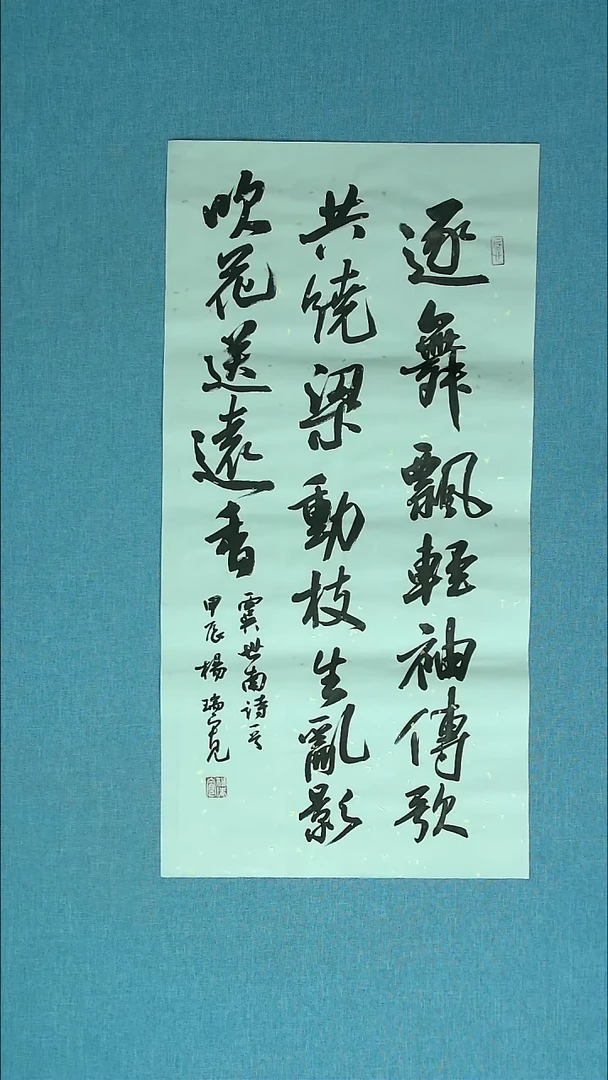 逐舞飄輕袖傳歌
共繞梁動枝生亂影
吹花送遠香
虞世南詩一首
甲辰楊瑞寬